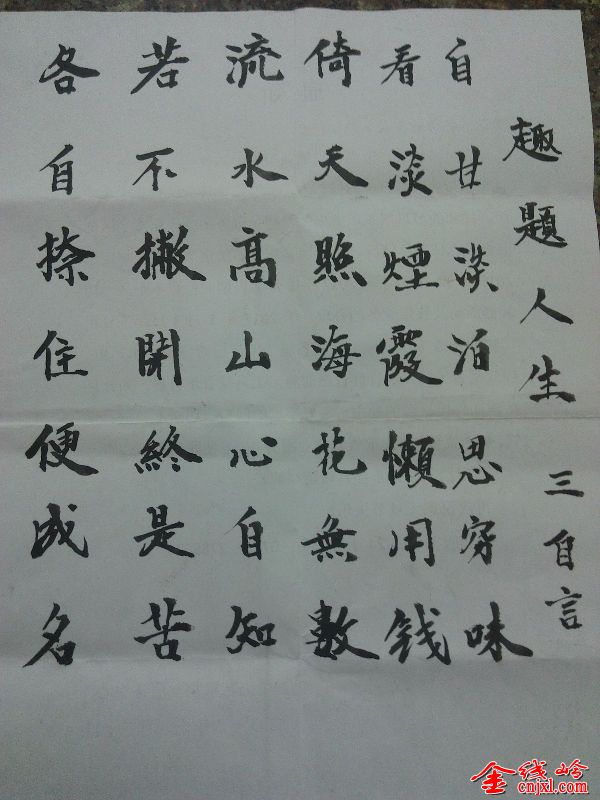 趣題人生 三自言
自甘淡泊思穷味
看淡煙霞懶用钱
倚天照海花無數
流水高山心自知
若不撇開終是苦
各自捺住便成名
金线岭
cnjxl.com